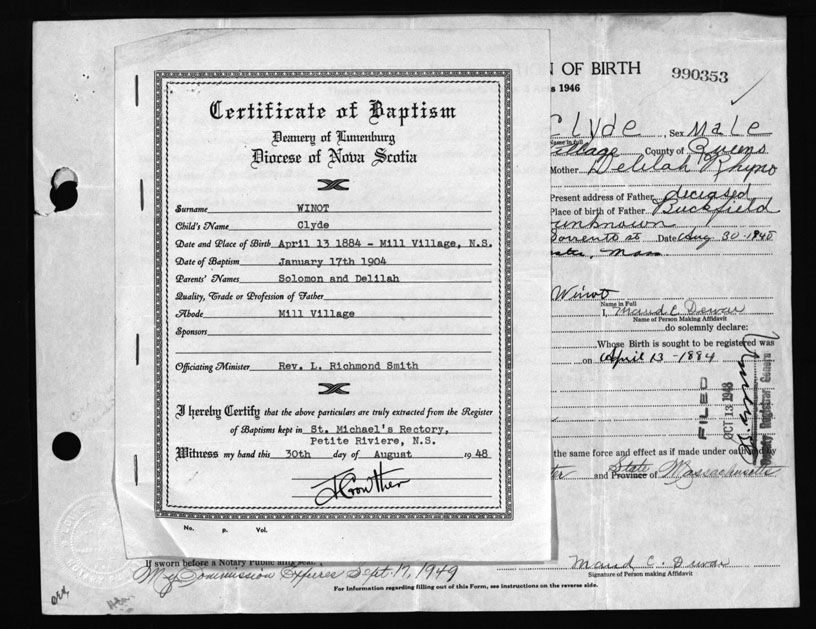 Certificate of Baptism
Deanery of Lunenburg
Diocese of Nova Scotia
Surname WINOT
Child's Name Clyde
Date and Place of Birth April 13 1884 - Mill Village, N.S.
Date of Baptism January 17th 1904
Parents' Names Solomon and Delilah
Quality, Trade or Profession of Father
Abode Mill Village
Sponsors
Officiating Minister Rev. L. Richmond Smith
I hereby Certify that the above particulars are truly extracted from the Register
of Baptisms kept in St. Michael's Rectory,
Petite Riviere, N.S.
Witness my hand this 30th day of August 1948
No. p. Vol.
N OF BIRTH
990353
1946
Clyde, Sex Male
Name in full
Village County of Queens
Mother Delilah Rhyno
Present address of Father deceased
Place of birth of Father Buckfield
unknown
Date Aug 30-1948
Mass
Winot
Name in Full
I, Maud C Dewar
Name of Person Making Affidavit
do solemnly declare:
Whose Birth is sought to be registered was
on April 13-1884
FILED
OCT 13 1948
the same force and effect as if made under oath
and Province of State Massachusetts
If sworn before a Notary Public
My Commission Expires Sept. 17, 1949
Maud C. Dewar
Signature of Person making Affidavit
For Information regarding filling out of this Form, see instructions on the reverse side.